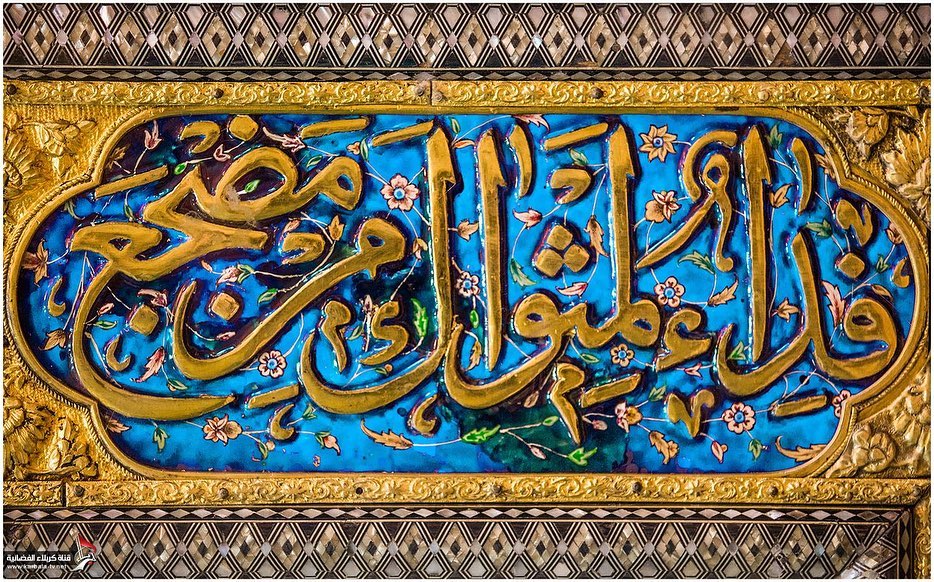 فداء لمثواك من مضجع
قناة كربلاء الفضائية
www.karbala-tv.net